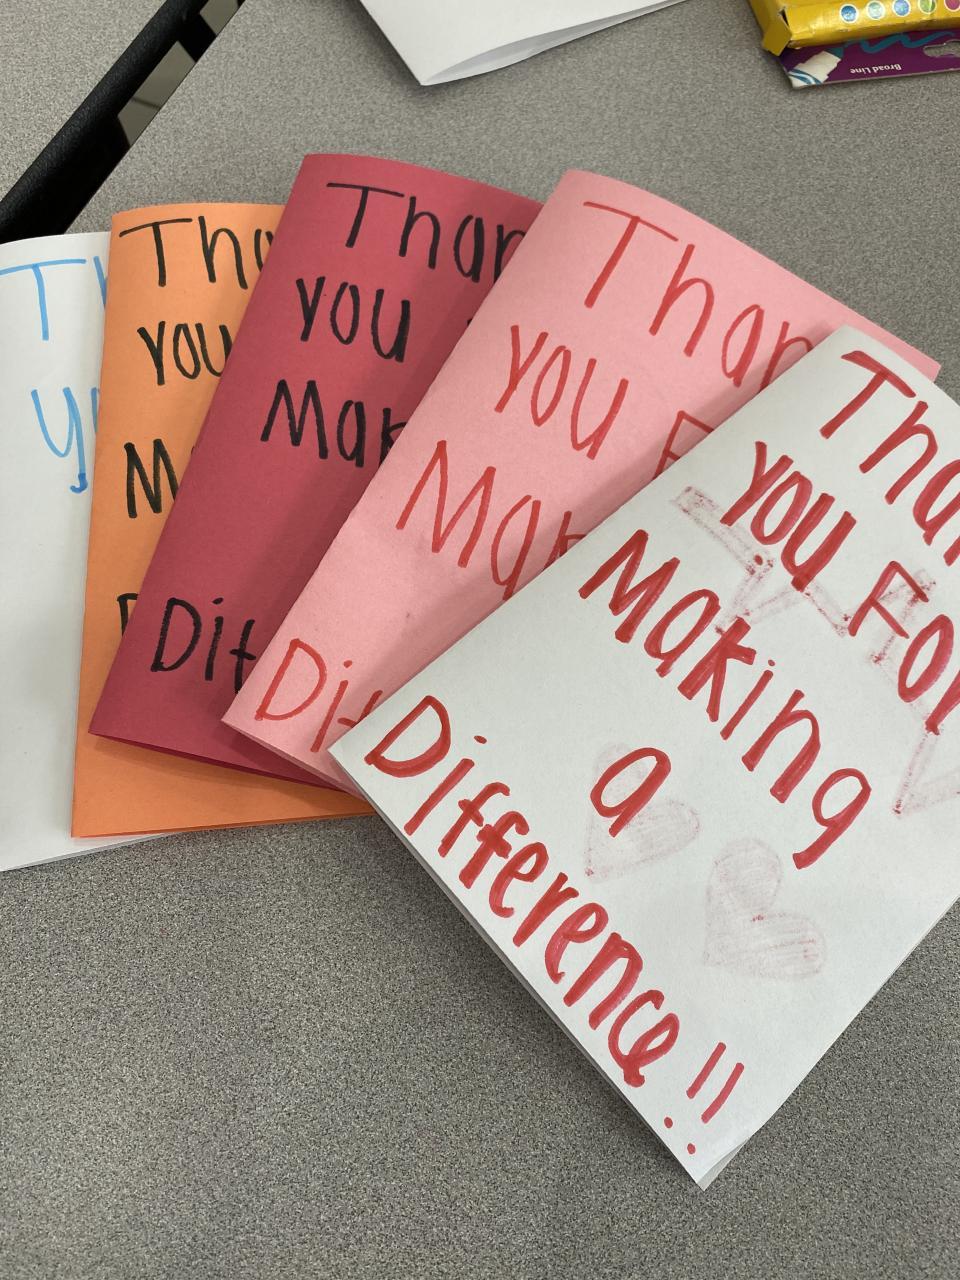 Broad Line
T
Y
Tha
you
M
Than
you
Mak
Dif
Than
you F
Mak
Dif
Than
you For
Making
a
Difference!!